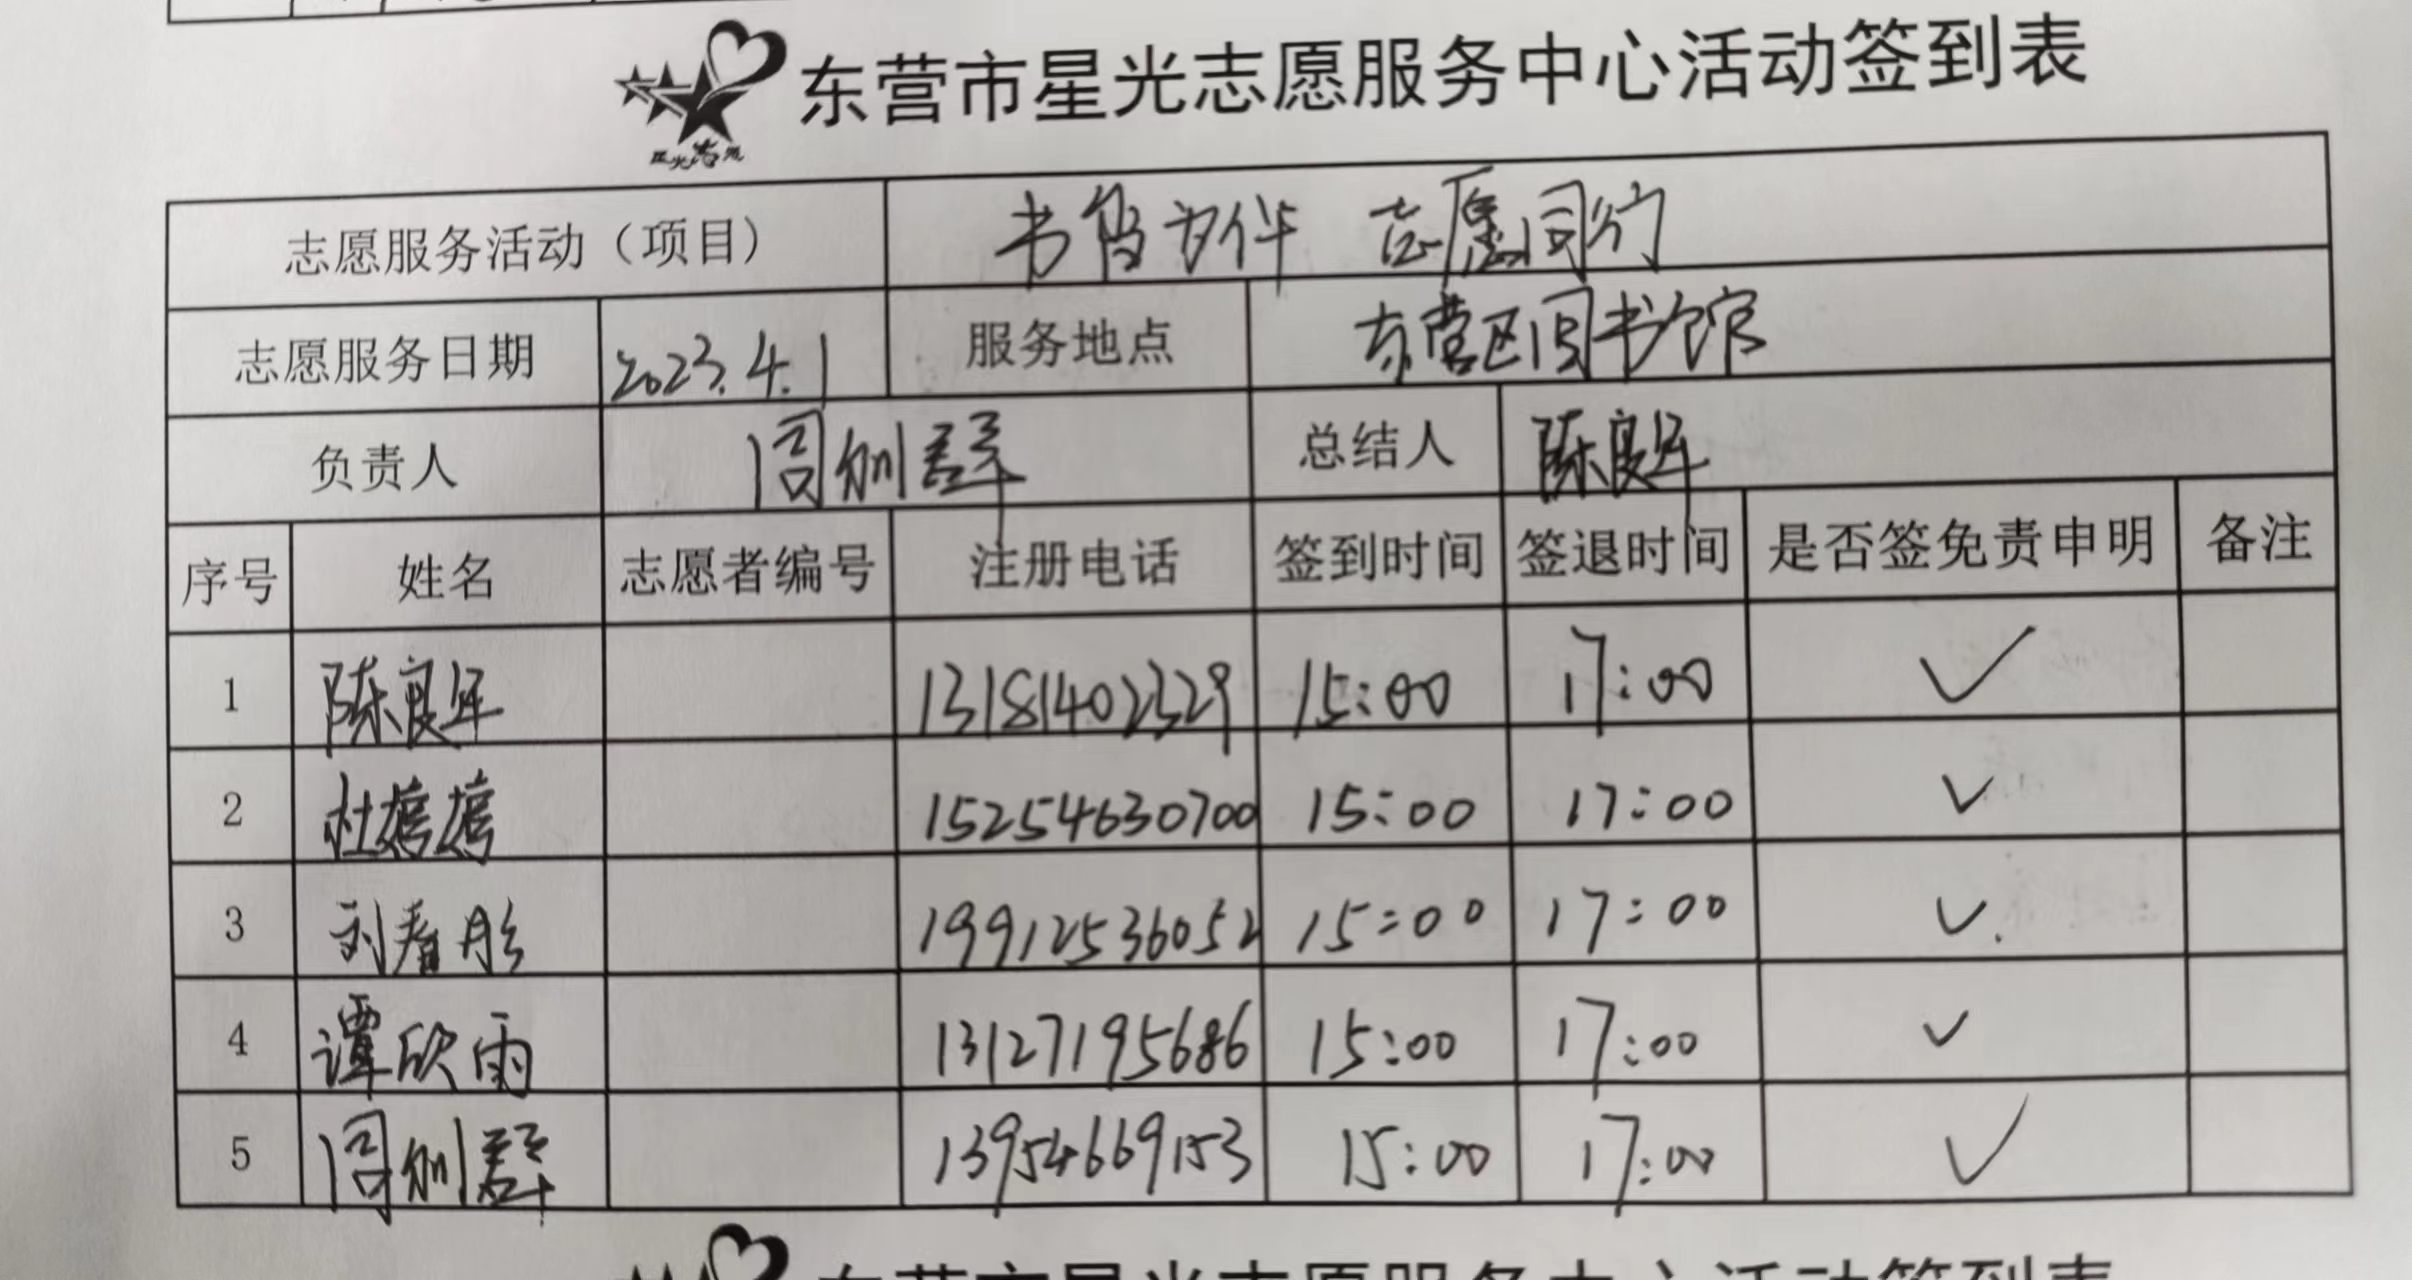 东营市星光志愿服务中心活动签到表
星光志愿
志愿服务活动（项目） 书香为伴 志愿同行
志愿服务日期 2023.4.1 服务地点 东营区图书馆
负责人 总结人 陈良年
序号 姓名 志愿者编号 注册电话 签到时间 签退时间 是否签免责申明 备注
1 陈良年 13181402329 15:00 17:00 ✓
2 杜嫦嫦 15254630700 15:00 17:00 ✓
3 刘春彤 19912536052 15:00 17:00 ✓
4 谭欣雨 13127195686 15:00 17:00 ✓
5 13954669153 15:00 17:00 ✓
东营市星光志愿服务中心活动签到表